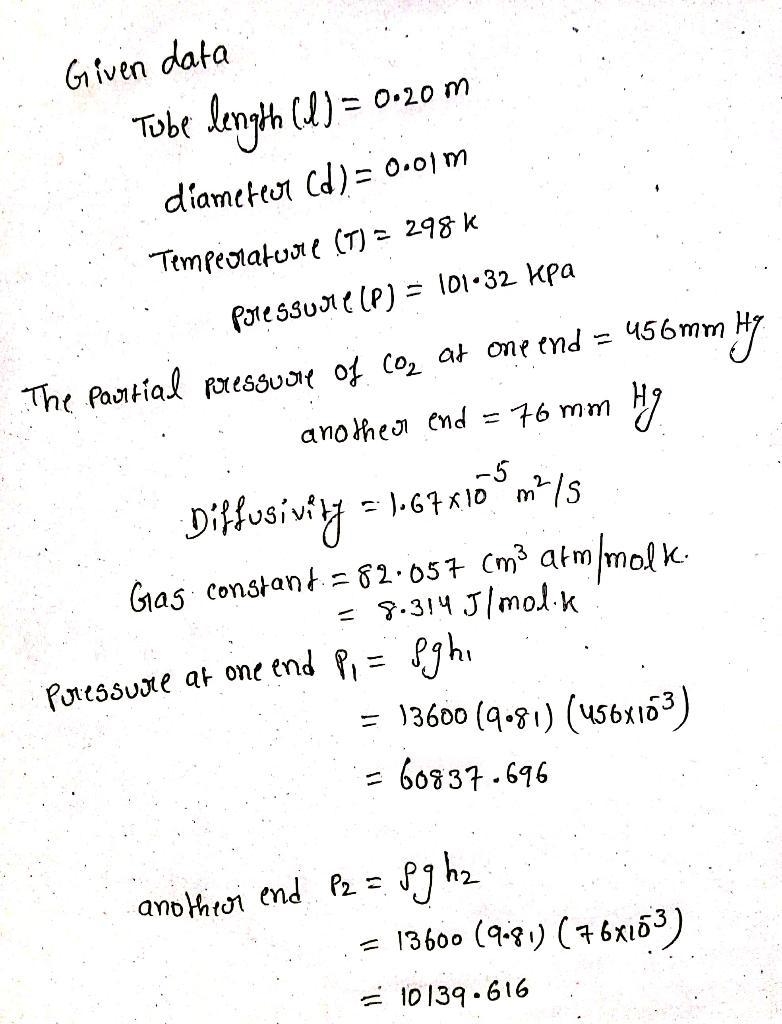 Given data
Tube length (l) = 0.20 m
diameter (d) = 0.01 m
Temperature (T) = 298 k
pressure (P) = 101.32 kpa
The partial pressure of CO₂ at one end = 456 mm Hg
another end = 76 mm Hg
Diffusivity = 1.67 x 10⁻⁵ m²/s
Gas constant = 82.057 cm³ atm/mol k.
= 8.314 J/mol.k
pressure at one end P₁ = ρgh₁
= 13600 (9.81) (456x10⁻³)
= 60837.696
another end P₂ = ρgh₂
= 13600 (9.81) (76x10⁻³)
= 10139.616